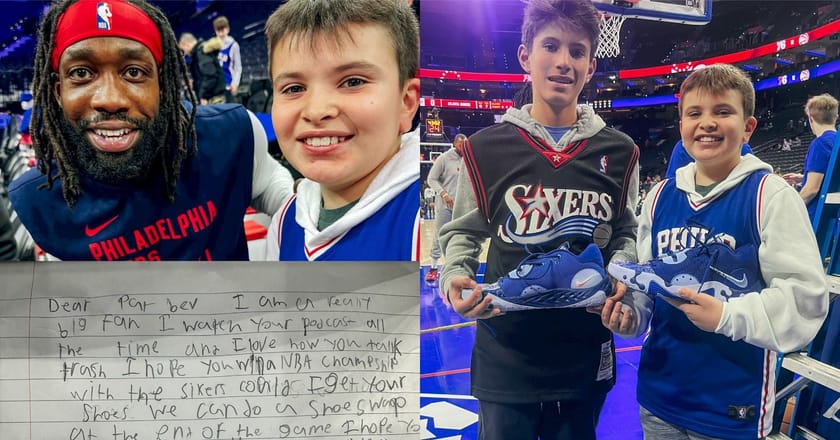 PHILADELPHIA
Dear Pat bev I am a really
big fan I watch your podcast all
the time and I love how you talk
trash I hope you win a NBA champship
with the sixers could I get your
shoes we can do a shoe swap
at the end of the game I hope yo
SIXERS
PHIL
NBA
24
76